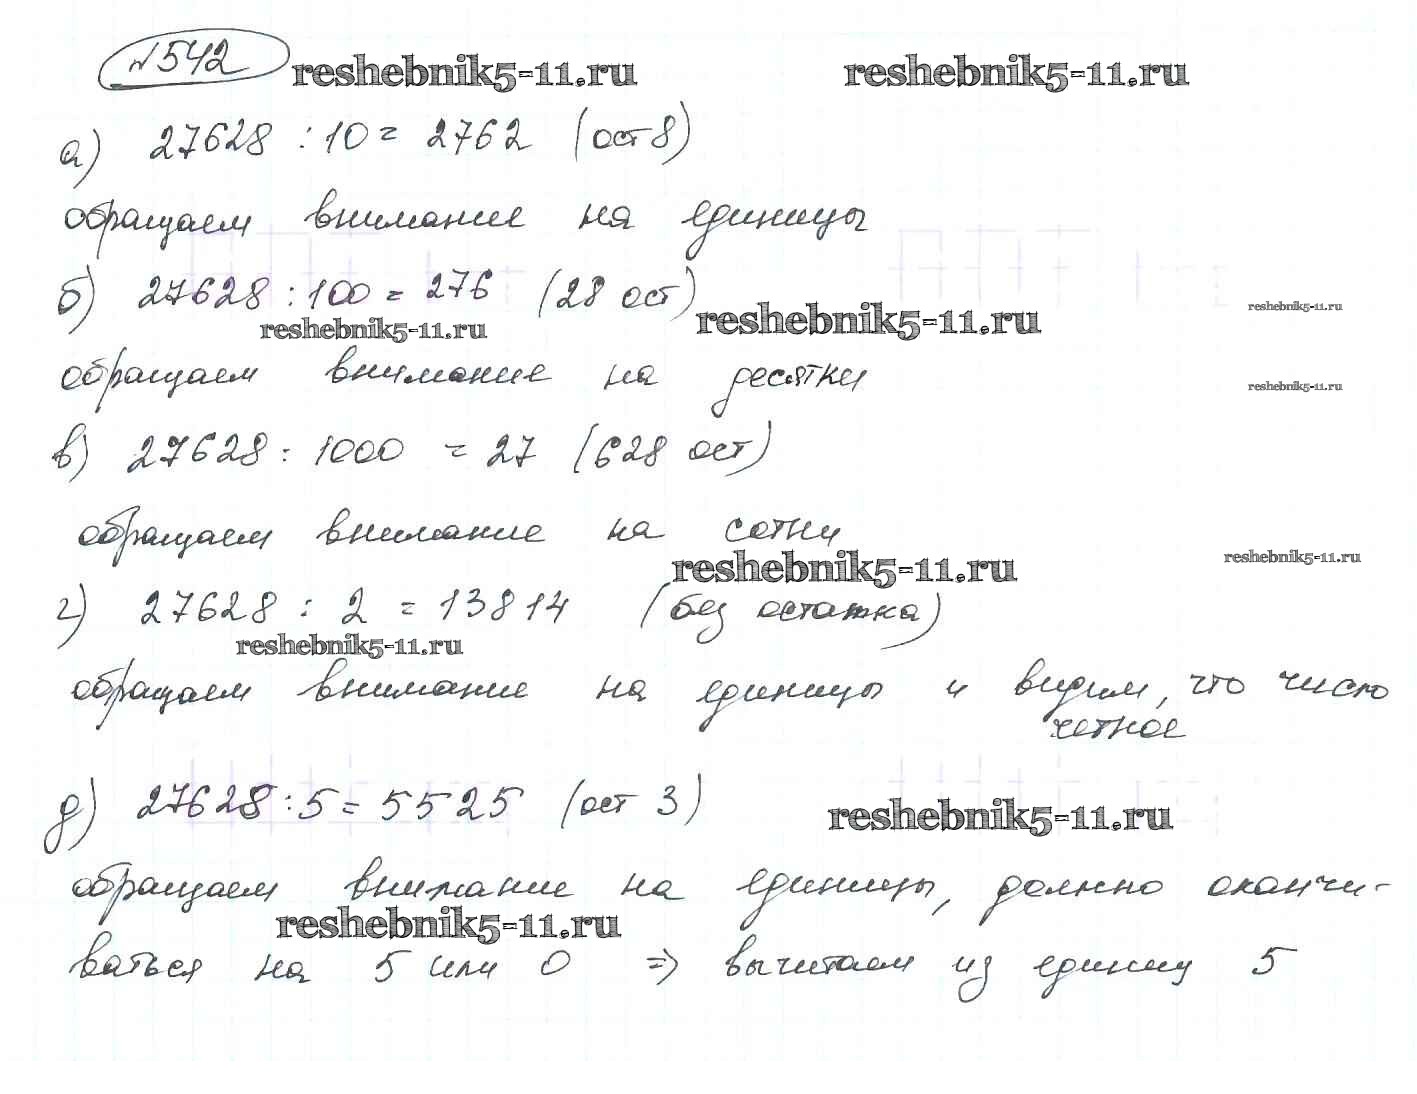 №542 reshebnik5-11.ru reshebnik5-11.ru
а) 27628 : 10 = 2762 (ост 8)
обращаем внимание на единицы
б) 27628 : 100 = 276 (28 ост) reshebnik5-11.ru reshebnik5-11.ru
reshebnik5-11.ru
обращаем внимание на десятки reshebnik5-11.ru
в) 27628 : 1000 = 27 (628 ост)
обращаем внимание на сотни
reshebnik5-11.ru reshebnik5-11.ru
г) 27628 : 2 = 13814 (без остатка)
reshebnik5-11.ru
обращаем внимание на единицы и видим, что число
четное
д) 27628 : 5 = 5525 (ост 3) reshebnik5-11.ru
обращаем внимание на единицы, должно оканчи-
reshebnik5-11.ru
ваться на 5 или 0 => вычитаем из единиц 5